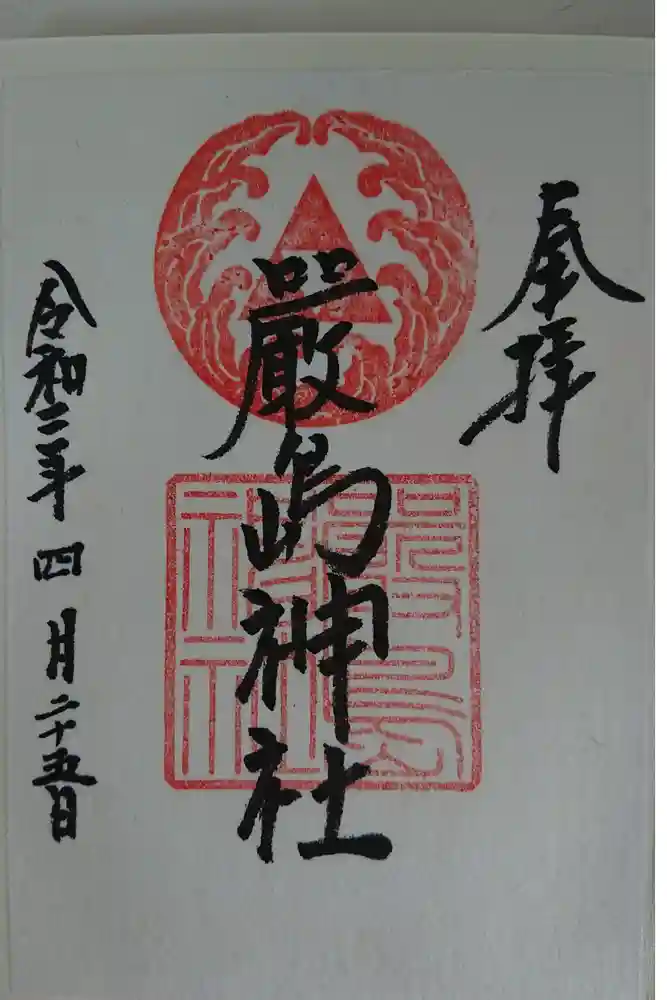 奉拝
嚴島神社
嚴島神社
令和二年四月二十五日